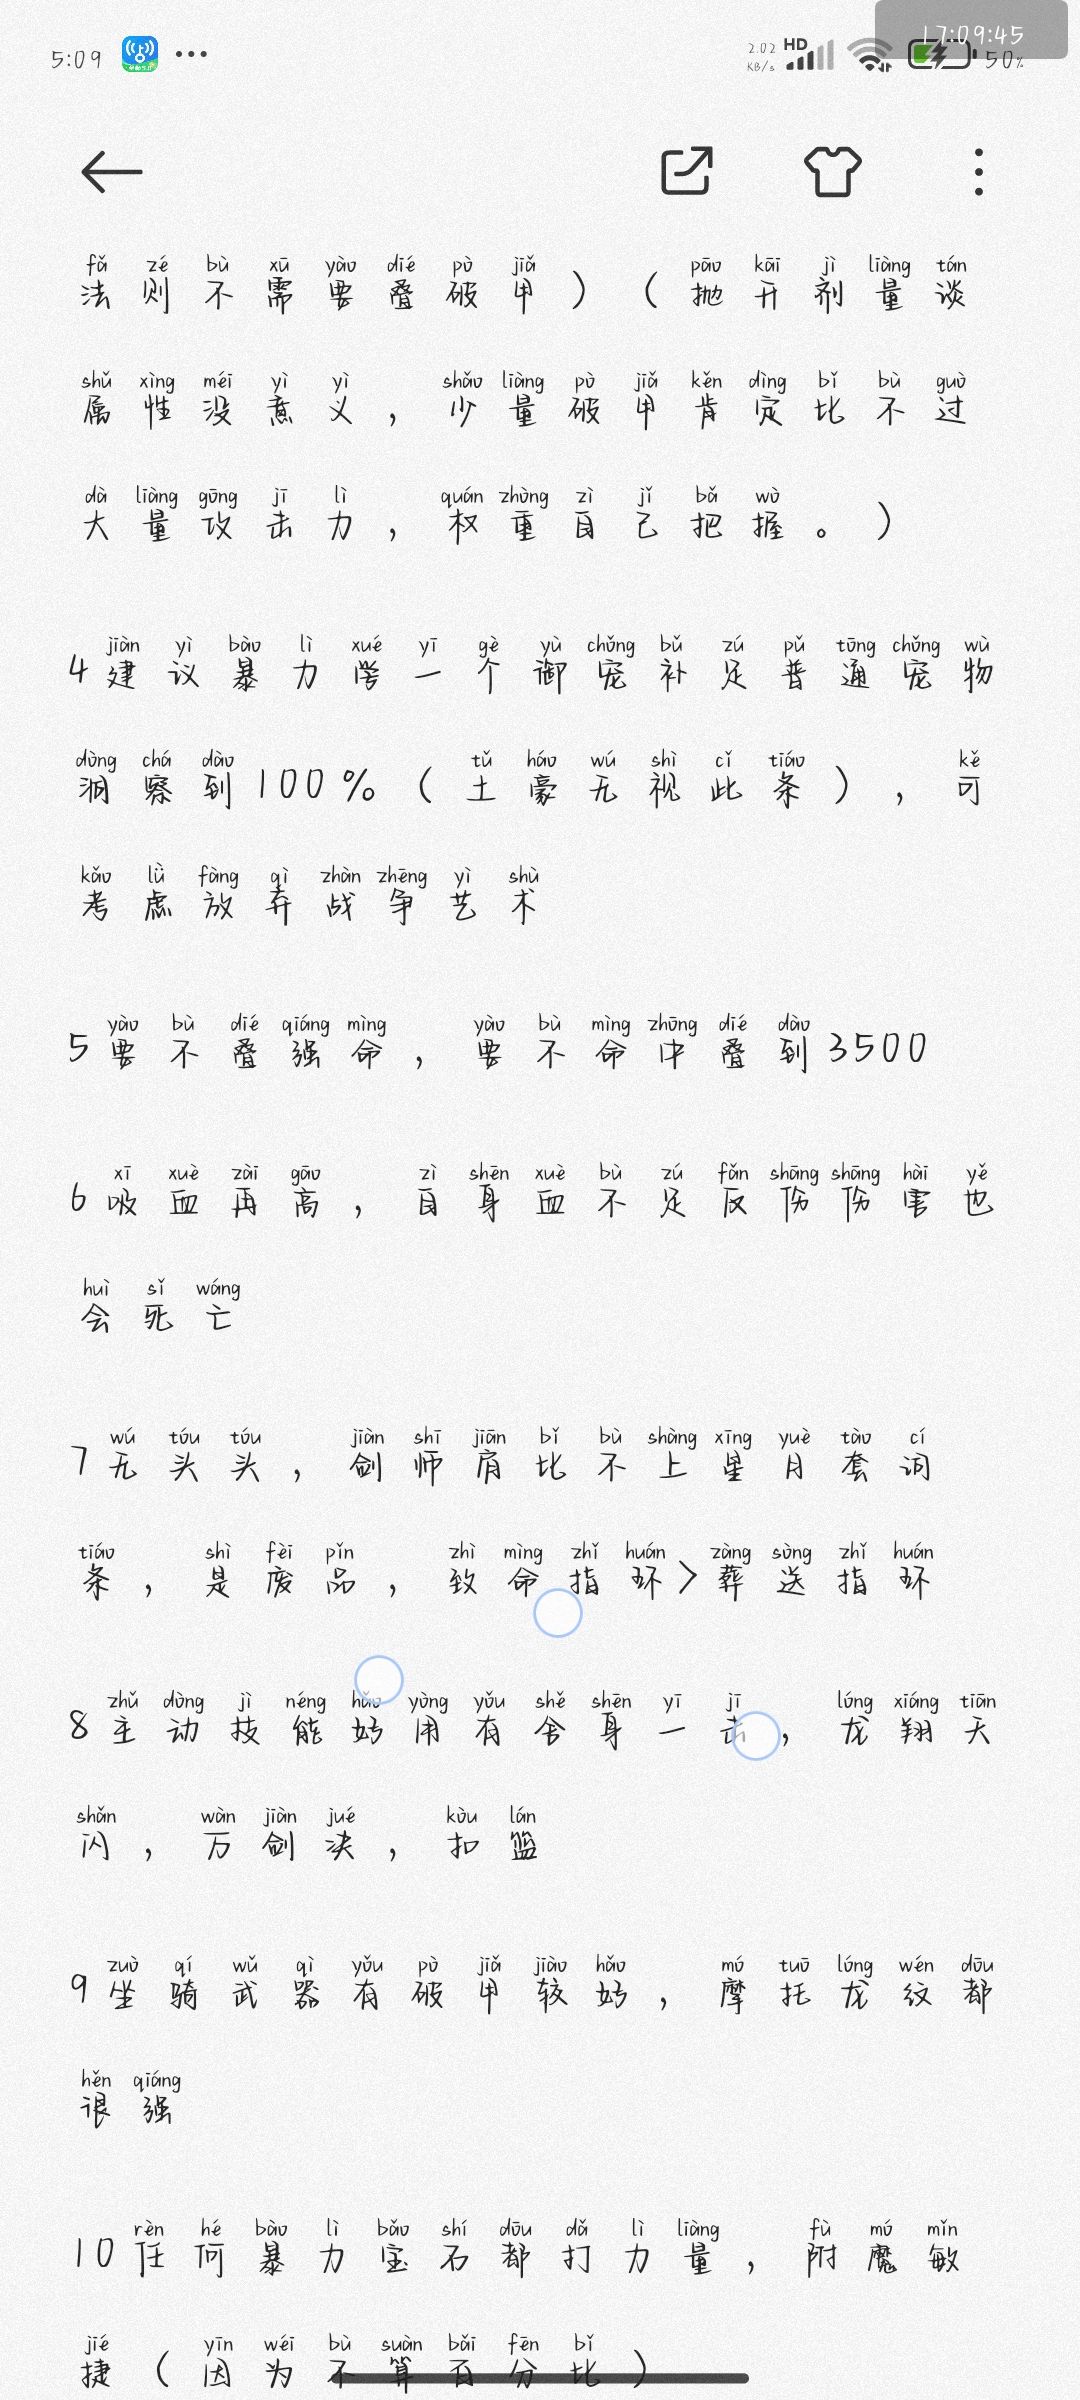 5:09 ••• 2.02 KB/s HD 17:09:45 50%
fǎ zé bù xū yào dié pò jiǎ pāo kāi jì liàng tán
法则不需要叠破甲）（抛开剂量谈
shǔ xìng méi yì yì shǎo liàng pò jiǎ kěn dìng bǐ bù guò
属性没意义，少量破甲肯定比不过
dà liàng gōng jī lì quán zhòng zì jǐ bǎ wò
大量攻击力，权重自己把握。）
jiàn yì bào lì xué yī gè yù chǒng bǔ zú pǔ tōng chǒng wù
4建议暴力学一个御宠补足普通宠物
dòng chá dào tǔ háo wú shì cǐ tiáo kě
洞察到100%（土豪无视此条），可
kǎo lǜ fàng qì zhàn zhēng yì shù
考虑放弃战争艺术
yào bù dié qiáng mìng yào bù mìng zhōng dié dào
5要不叠强命，要不命中叠到3500
xī xuè zài gāo zì shēn xuè bù zú fǎn shāng shāng hài yě
6吸血再高，自身血不足反伤伤害也
huì sǐ wáng
会死亡
wú tóu tóu jiàn shī jiān bǐ bù shàng xīng yuè tào cí
7无头头，剑师肩比不上星月套词
tiáo shì fèi pǐn zhì mìng zhǐ huán zàng sòng zhǐ huán
条，是废品，致命指环>葬送指环
zhǔ dòng jì néng hǎo yòng yǒu shě shēn yī jī lóng xiáng tiān
8主动技能好用有舍身一击，龙翔天
shǎn wàn jiàn jué kòu lán
闪，万剑决，扣篮
zuò qí wǔ qì yǒu pò jiǎ jiào hǎo mó tuō lóng wén dōu
9坐骑武器有破甲较好，摩托龙纹都
hěn qiáng
很强
rèn hé bào lì bǎo shí dōu dǎ lì liàng fù mó mǐn
10任何暴力宝石都打力量，附魔敏
jié yīn wéi bù suàn bǎi fēn bǐ
捷（因为不算百分比）